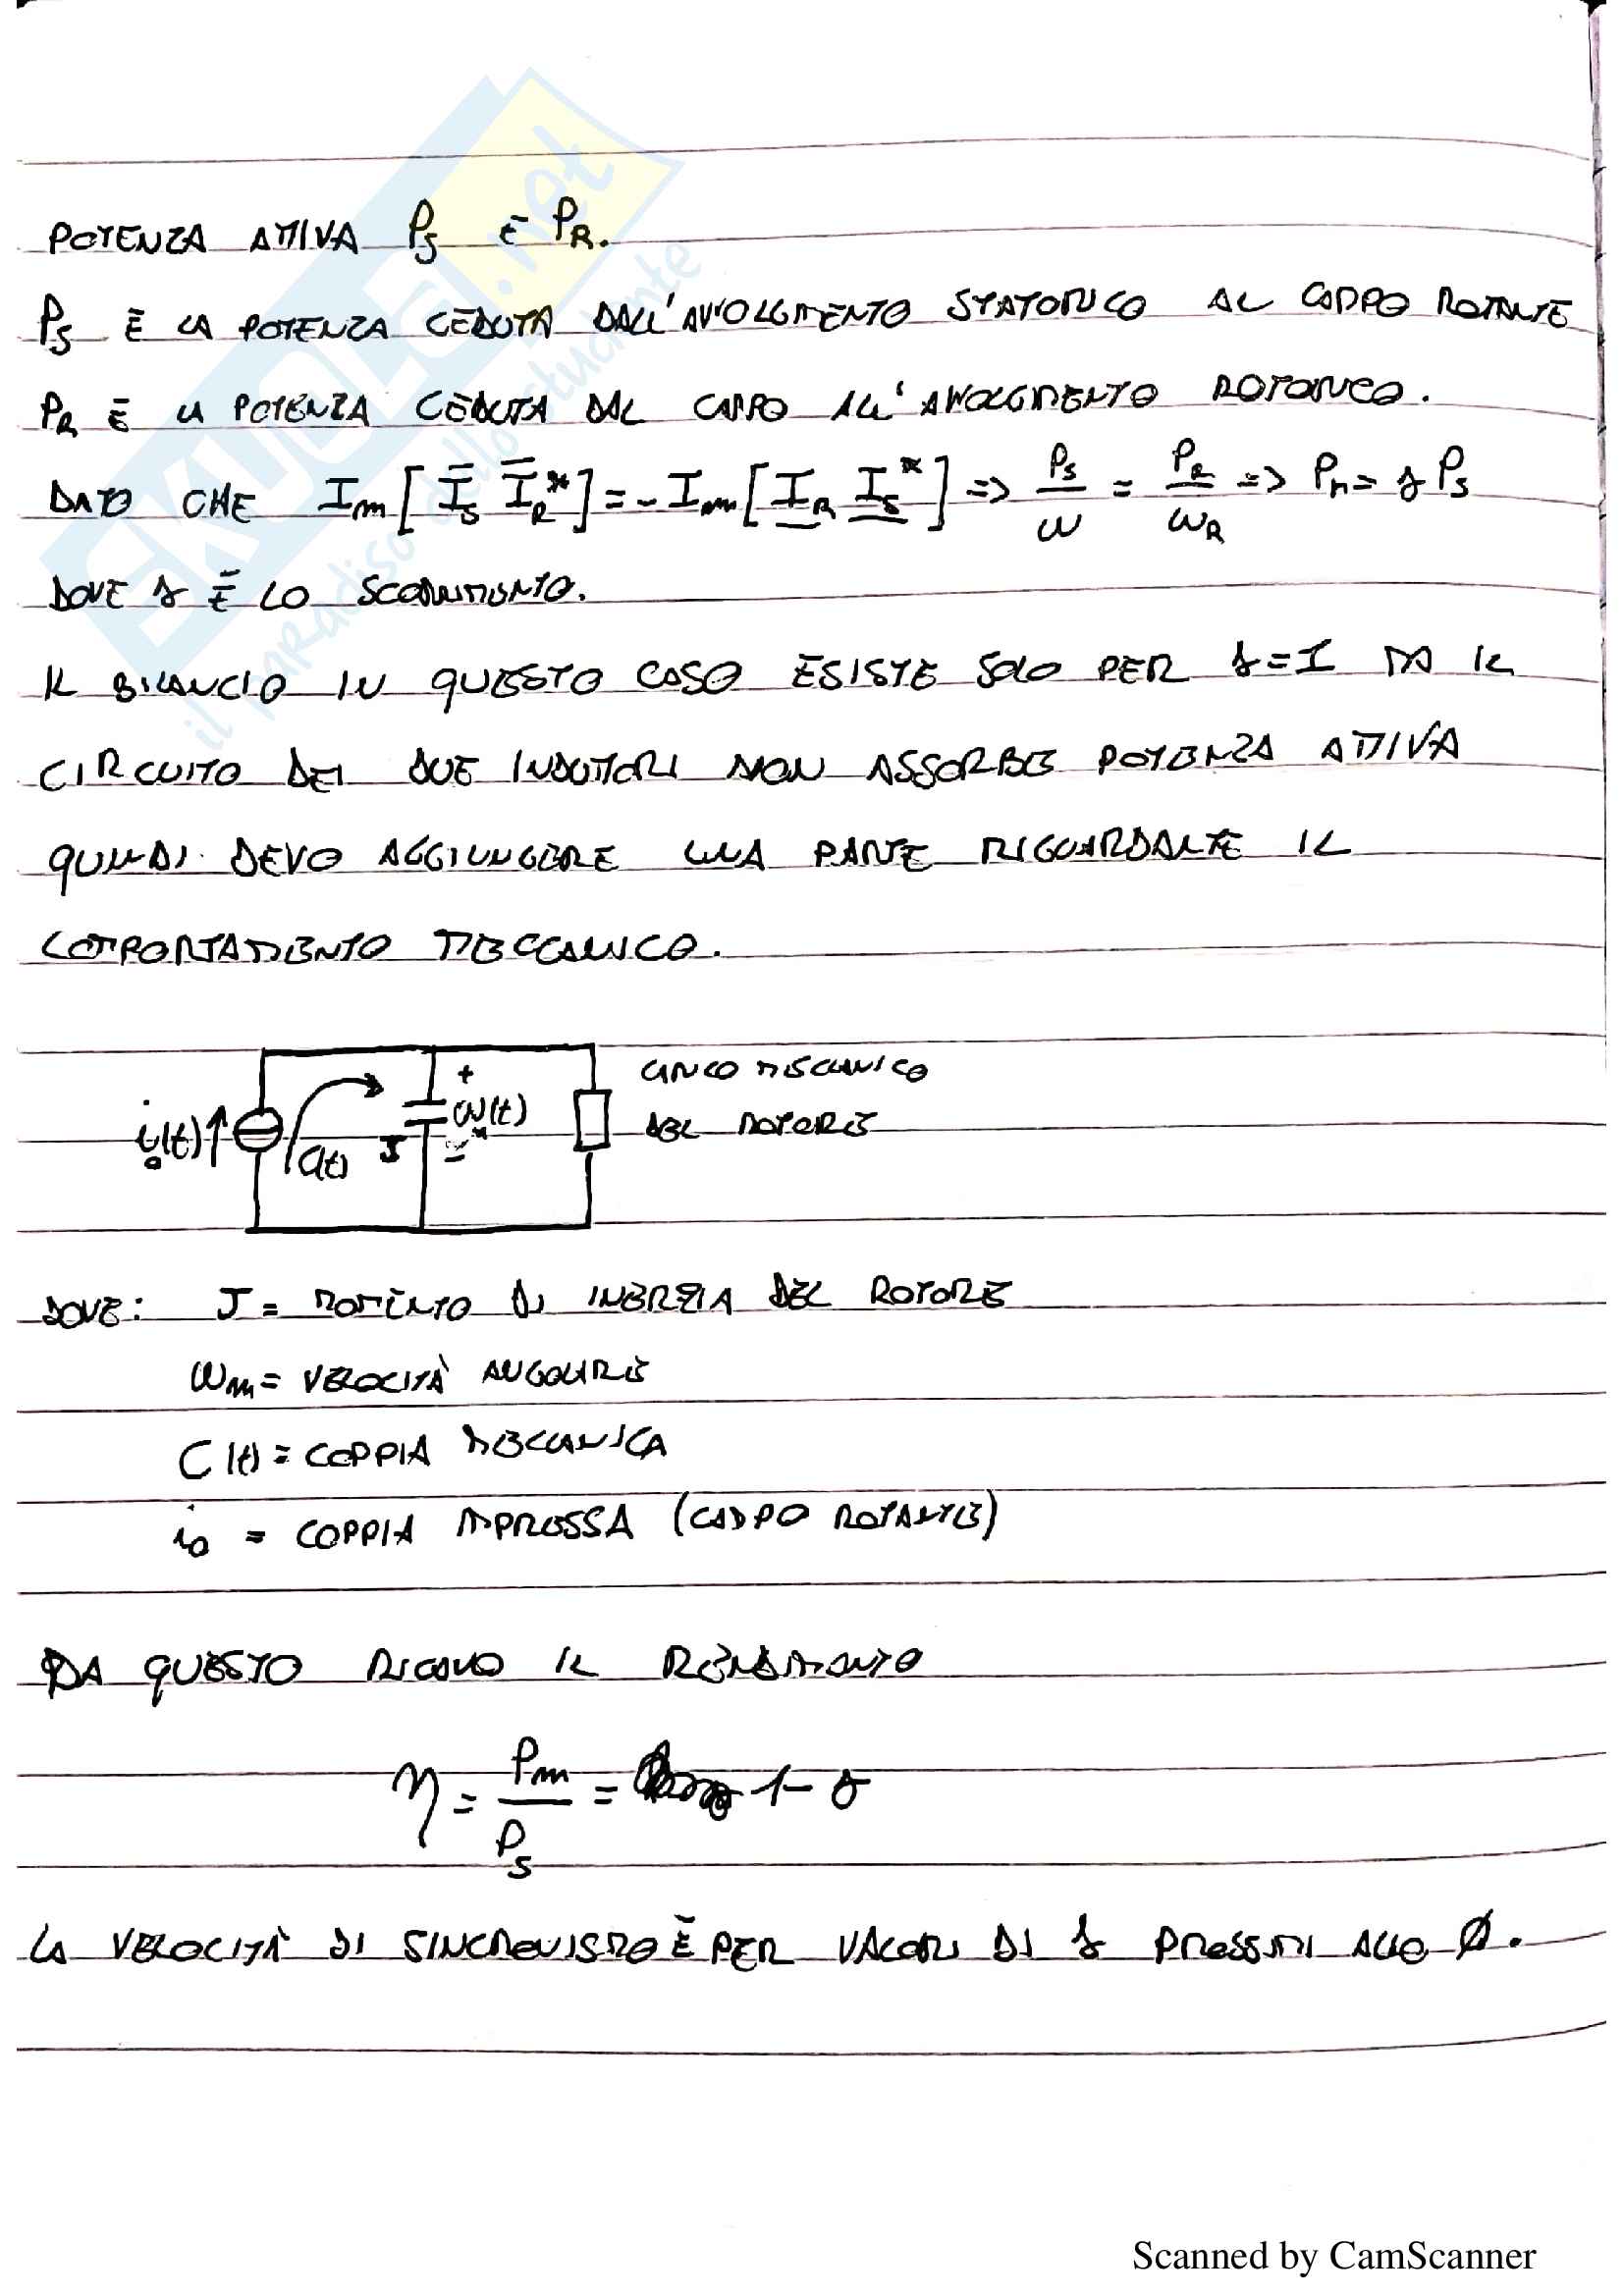 POTENZA ATTIVA P_S E P_R.
P_S È LA POTENZA CEDUTA DALL'AVVOLGIMENTO STATORICO AL CAMPO ROTANTE
P_R È LA POTENZA CEDUTA DAL CAMPO ALL'AVVOLGIMENTO ROTORICO.
DATO CHE Im[Ī_S Ī_R*] = -Im[I_R I_S*] => P_S/ω = P_R/ω_R => P_R = s P_S
DOVE s È LO SCORRIMENTO.
IL BILANCIO IN QUESTO CASO ESISTE SOLO PER s=1 MA IL
CIRCUITO DEI DUE INDUTTORI NON ASSORBE POTENZA ATTIVA
QUINDI DEVO AGGIUNGERE UNA PARTE RIGUARDANTE IL
COMPORTAMENTO MECCANICO.
i_0(t) C(t) J + ω(t) - CARICO MECCANICO
DEL MOTORE
DOVE: J = MOMENTO DI INERZIA DEL ROTORE
ω_m = VELOCITÀ ANGOLARE
C(t) = COPPIA MECCANICA
i_0 = COPPIA IMPRESSA (CAMPO ROTANTE)
DA QUESTO RICAVO IL RENDIMENTO
η = P_m/P_S = 1 - s
LA VELOCITÀ DI SINCRONISMO È PER VALORI DI s PROSSIMI ALLO 0.
SKUOLA.net
il paradiso dello studente
Scanned by CamScanner